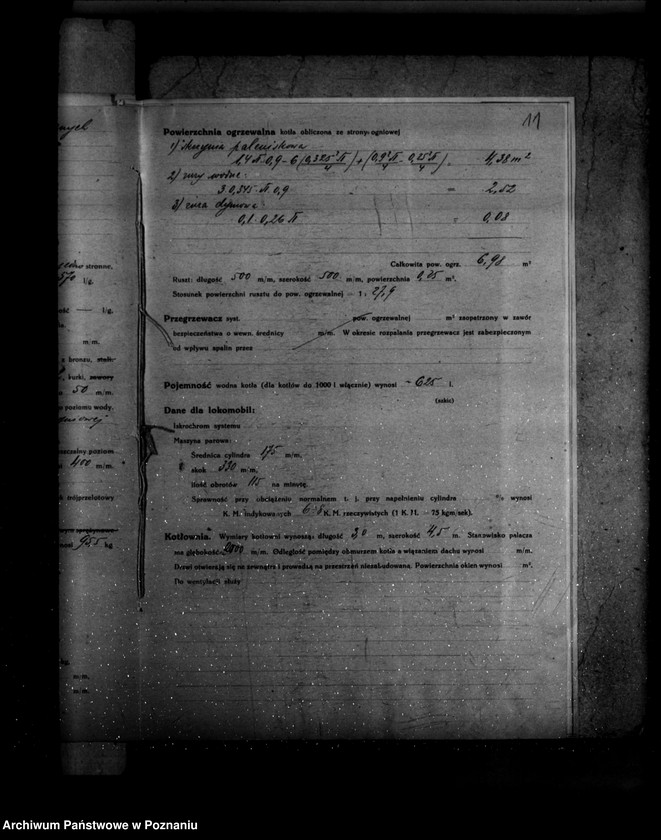 11
Powierzchnia ogrzewalna kotła obliczona ze strony ogniowej
1) skrzynia paleniskowa
4,38 m²
2) rury wodne
3 0,345 π 0,9 = 2,52
3) rura dymowa
0,1 · 0,26 π = 0,08
Całkowita pow. ogrz. 6,98 m²
Ruszt: długość 500 m/m, szerokość 500 m/m, powierzchnia 0,25 m².
Stosunek powierzchni rusztu do pow. ogrzewalnej — 1 : 27,9
Przegrzewacz syst. pow. ogrzewalnej m² zaopatrzony w zawór
bezpieczeństwa o wewn. średnicy m/m. W okresie rozpalania przegrzewacz jest zabezpieczony
od wpływu spalin przez
Pojemność wodna kotła (dla kotłów do 1000 l włącznie) wynosi ~ 625 l.
(szkic)
Dane dla lokomobil:
Iskrochron systemu
Maszyna parowa:
Średnica cylindra 175 m/m,
skok 330 m/m,
Ilość obrotów 115 na minutę.
Sprawność przy obciążeniu normalnem t. j. przy napełnieniu cylindra % wynosi
K. M. indykowanych 6-8 K. M. rzeczywistych (1 K. M. — 75 kgm/sek).
Kotłownia. Wymiary kotłowni wynoszą: długość 3,0 m, szerokość 4,5 m. Stanowisko palacza
ma głębokość 2000 m/m. Odległość pomiędzy obmurzem kotła a wiązaniem dachu wynosi m/m.
Drzwi otwierają się na zewnątrz i prowadzą na przestrzeń niezabudowaną. Powierzchnia okien wynosi m².
Do wentylacji służy
stronne.
l/g.
l/g.
m/m.
bronzu,
kurki, zawory
50 m/m.
poziomu wody.
poziom
400 m/m.
955 kg
kg.
m/m.
m/m.
Archiwum Państwowe w Poznaniu